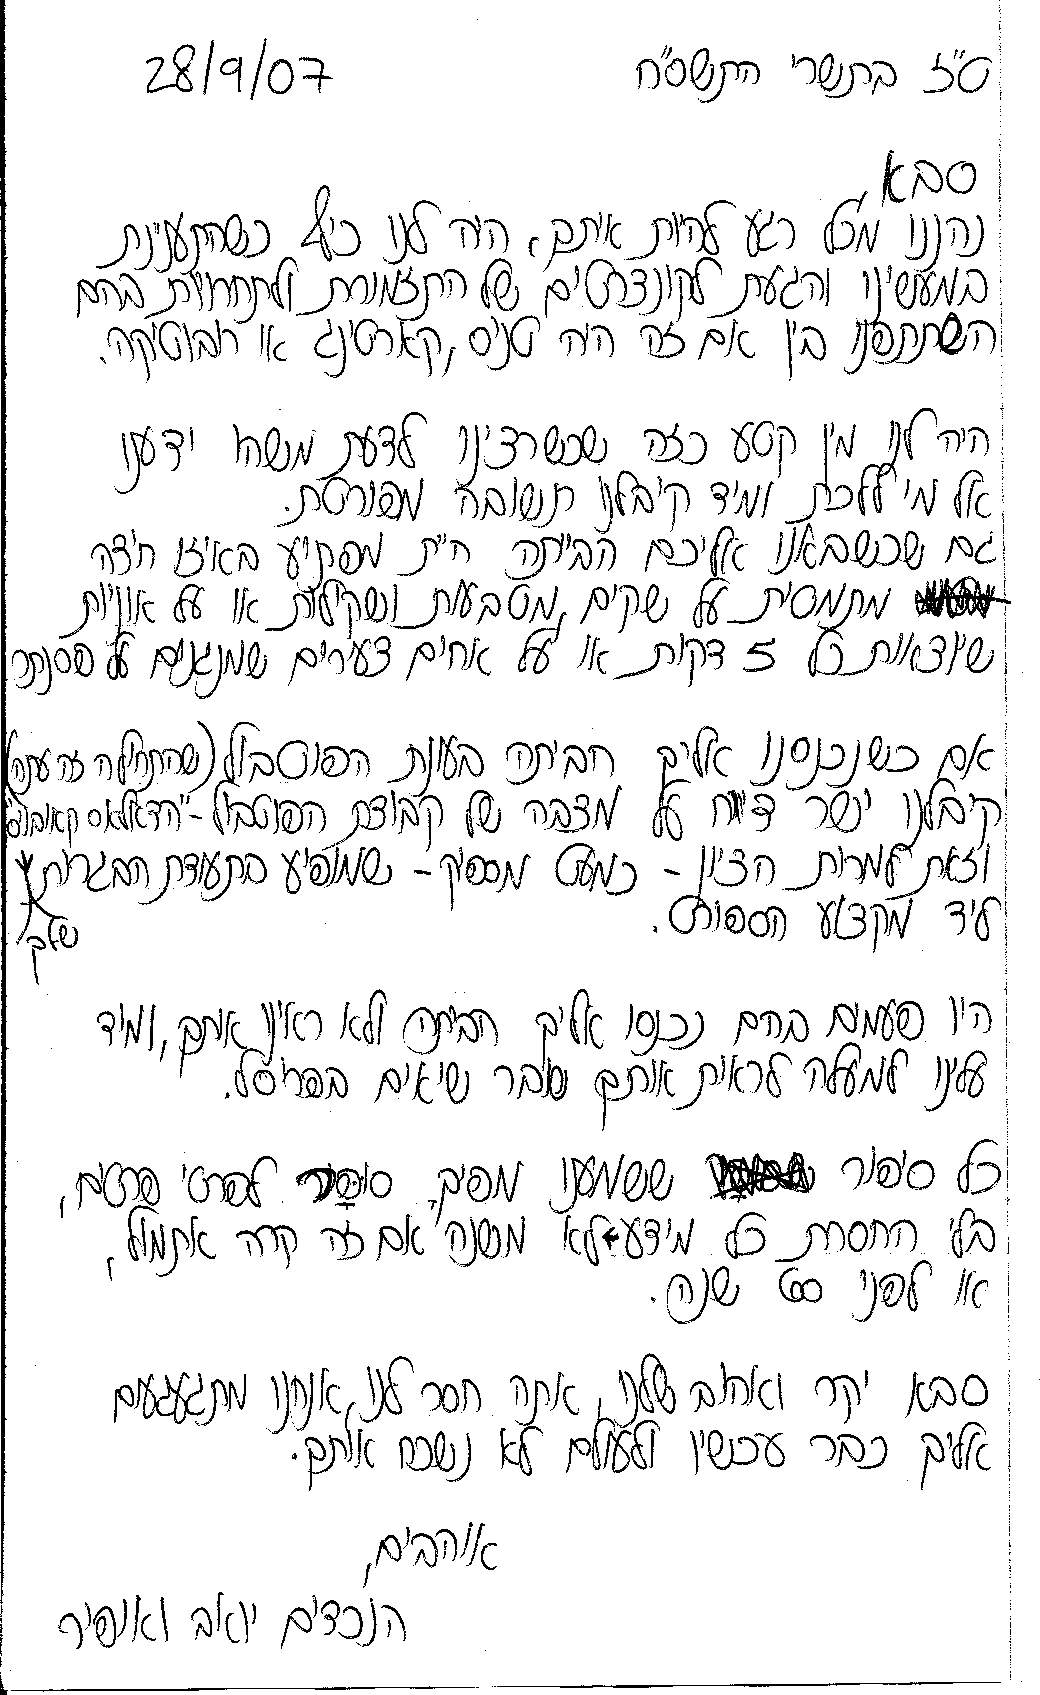 ט"ז בתשרי התשס"ח 28/9/07
סבא,
נהננו מכל רגע להיות איתך, היה לנו כיף כשהתענינת
במעשינו והגעת לקונצרטים של התזמורת ולתחרויות בהם
השתתפנו בין אם זה היה טניס, קארטינג או רובוטיקה.
היה לנו מין קטע כזה שכשרצינו לדעת משהו ידענו
אל מי ללכת ומיד קיבלנו תשובה מפורטת.
גם שכשבאנו אליכם הביתה היית מפתיע באיזו חידה
מתמטית על שקים, מטבעות ומשקולות או על אוניות
שיוצאות כל 5 דקות או על אחים צעירים שמנגנים על פסנתר
אם כשנכנסנו אליך הביתה בעונת הפוטבול (שהתחילה זה עתה)
קיבלנו ישר דיווח על מצבה של קבוצת הפוטבול - "הדאלאס קאובויס"
וזאת למרות הציון - כמעט מספיק - שמופיע בתעודת הבגרות
שלך
ליד מקצוע הספורט.
היו פעמים בהם נכנסנו אליך הביתה ולא ראינו אותך, ומיד
עלינו למעלה לראות אותך שובר שיאים בפריסל.
כל סיפור ששמענו מפיך, סופר לפרטי פרטים,
בלי החסרת כל מידע-לא משנה אם זה קרה אתמול,
או לפני 60 שנה.
סבא יקר ואהוב שלנו, אתה חסר לנו, אנחנו מתגעגעים
אליך כבר עכשיו ולעולם לא נשכח אותך.
אוהבים,
הנכדים יואב ואופיר